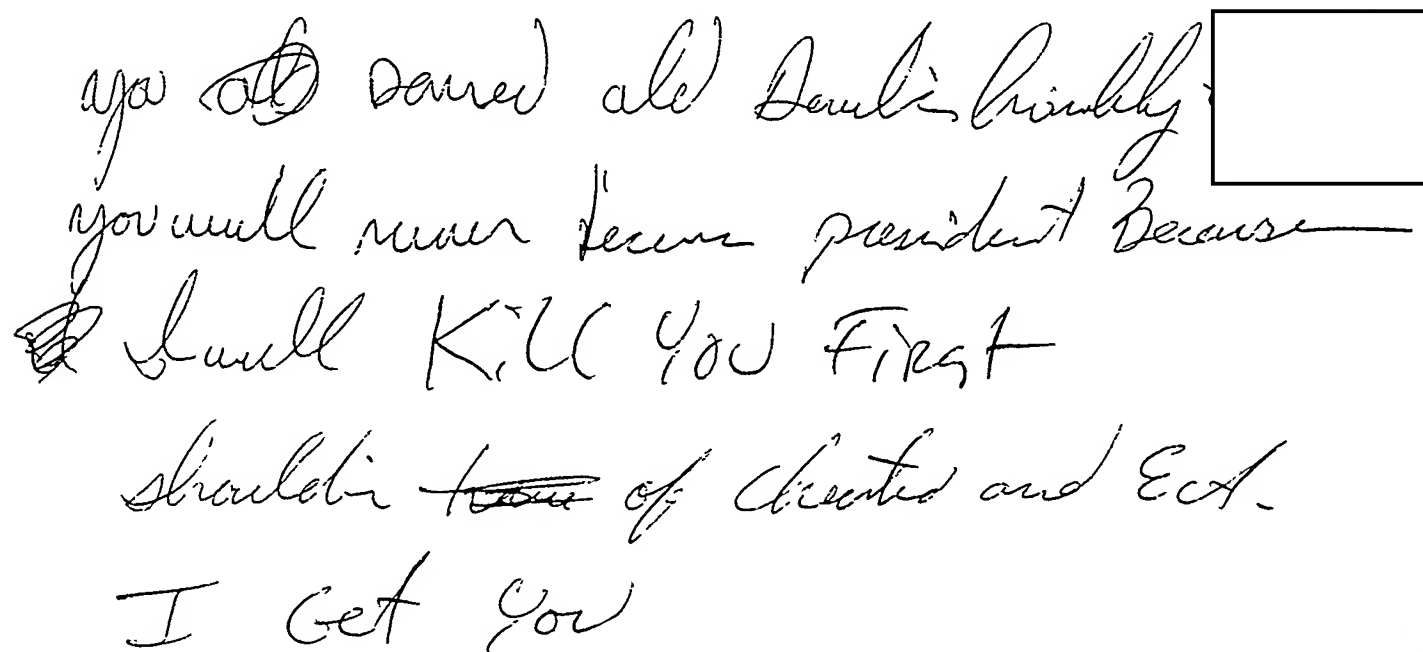 you old
you will never become president Because
I will Kill You First
shouldin of cheated and Ect.
I Get You